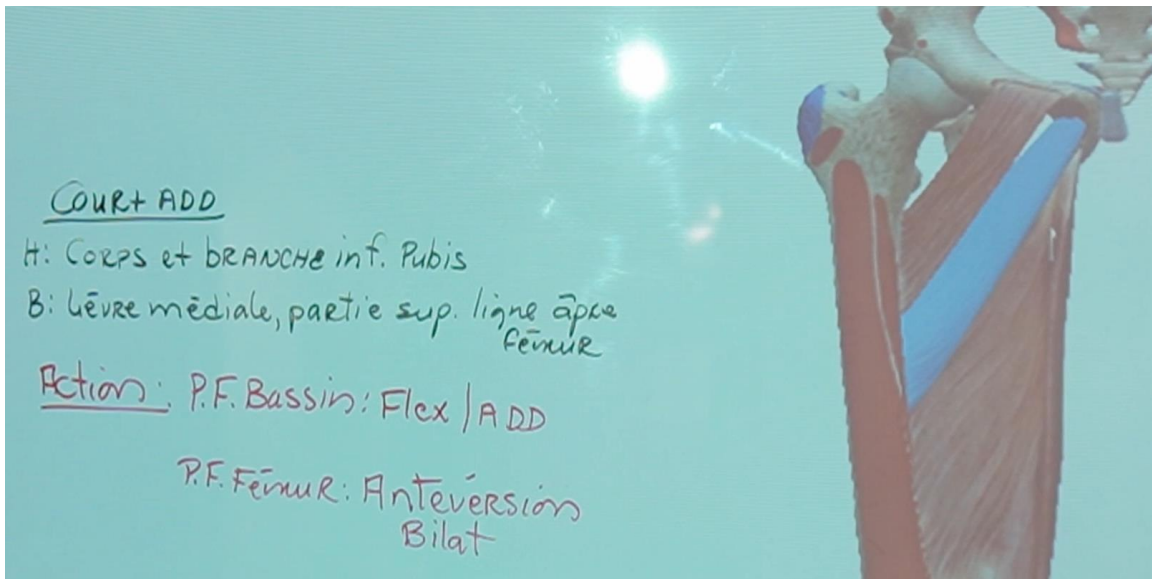 COURt ADD
H: CORPS et bRANCHE inf. Pubis
B: Lèvre médiale, partie sup. ligne âpre
fémuR
Action: P.F. Bassin: Flex / ADD
P.F. FémuR: Antéversion
Bilat